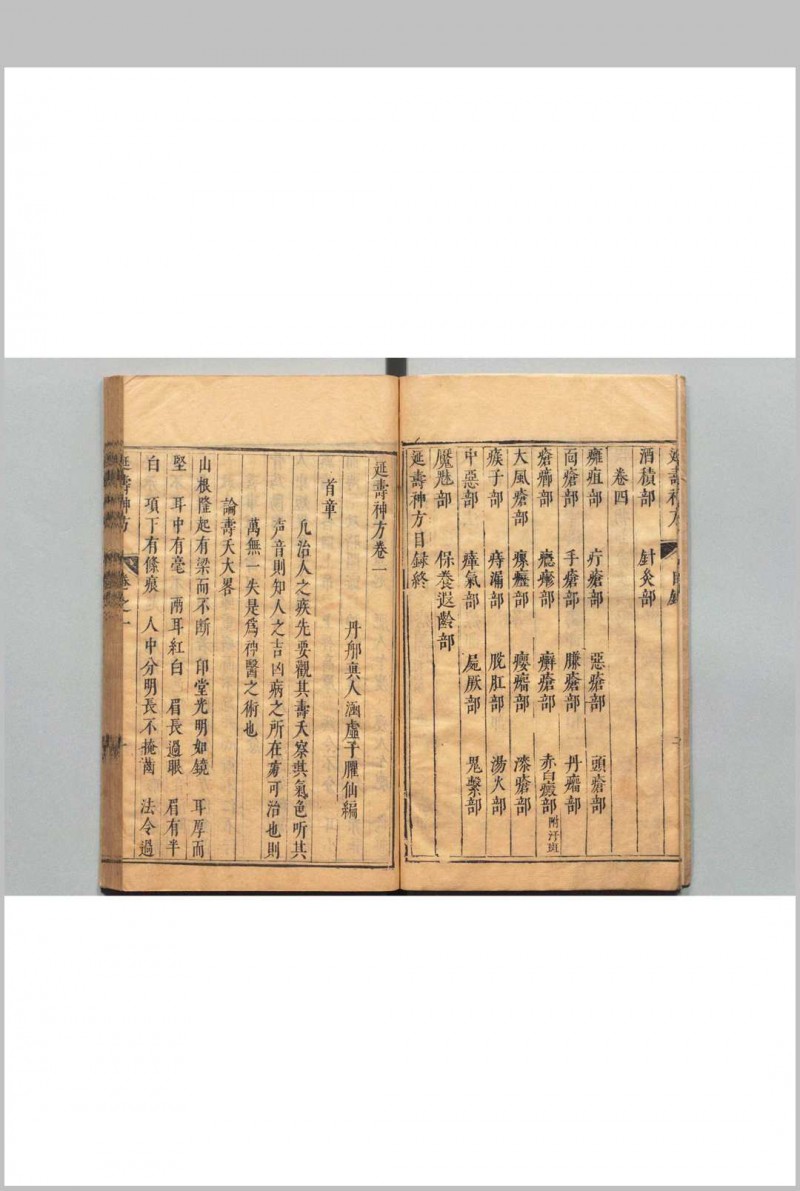 延壽神方 目錄
酒積部 針灸部
卷四
癰疽部 疔瘡部 惡瘡部 頭瘡部
面瘡部 手瘡部 臁瘡部 丹瘤部
瘡癤部 癮疹部 癬瘡部 赤白癜部 附汗斑
大風瘡部 瘰癧部 癭瘤部 漆瘡部
瘊子部 痔漏部 脫肛部 湯火部
中惡部 瘴氣部 屍厥部 鬼擊部
魘魅部 保養遐齡部
延壽神方目録終
延壽神方卷一
丹丘奥人涵虛子臞仙編
首章
凢治人之疾先要觀其壽夭察其氣色听其
声音則知人之吉凶病之所在可治也則
萬無一失是爲神醫之術也
論壽夭大畧
山根隆起有梁而不断 印堂光明如鏡 耳厚而
堅 耳中有毫 兩耳紅白 眉長過眼 眉有半
白 項下有條痕 人中分明長不掩齒 法令過
延壽神方 卷之一